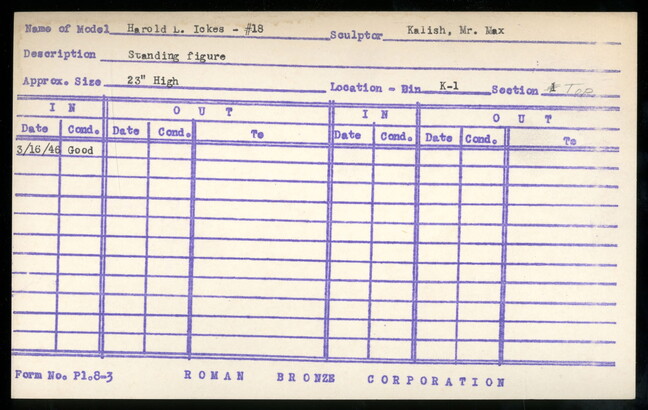 Name of Model Harold L. Ickes - #18 Sculptor Kalish, Mr. Max
Description Standing figure
Approx. Size 23" High Location - Bin K-1 Section 1 Top
I N O U T I N O U T
Date Cond. Date Cond. To Date Cond. Date Cond. To
3/16/46 Good
Form No. Pl.8-3 R O M A N B R O N Z E C O R P O R A T I O N